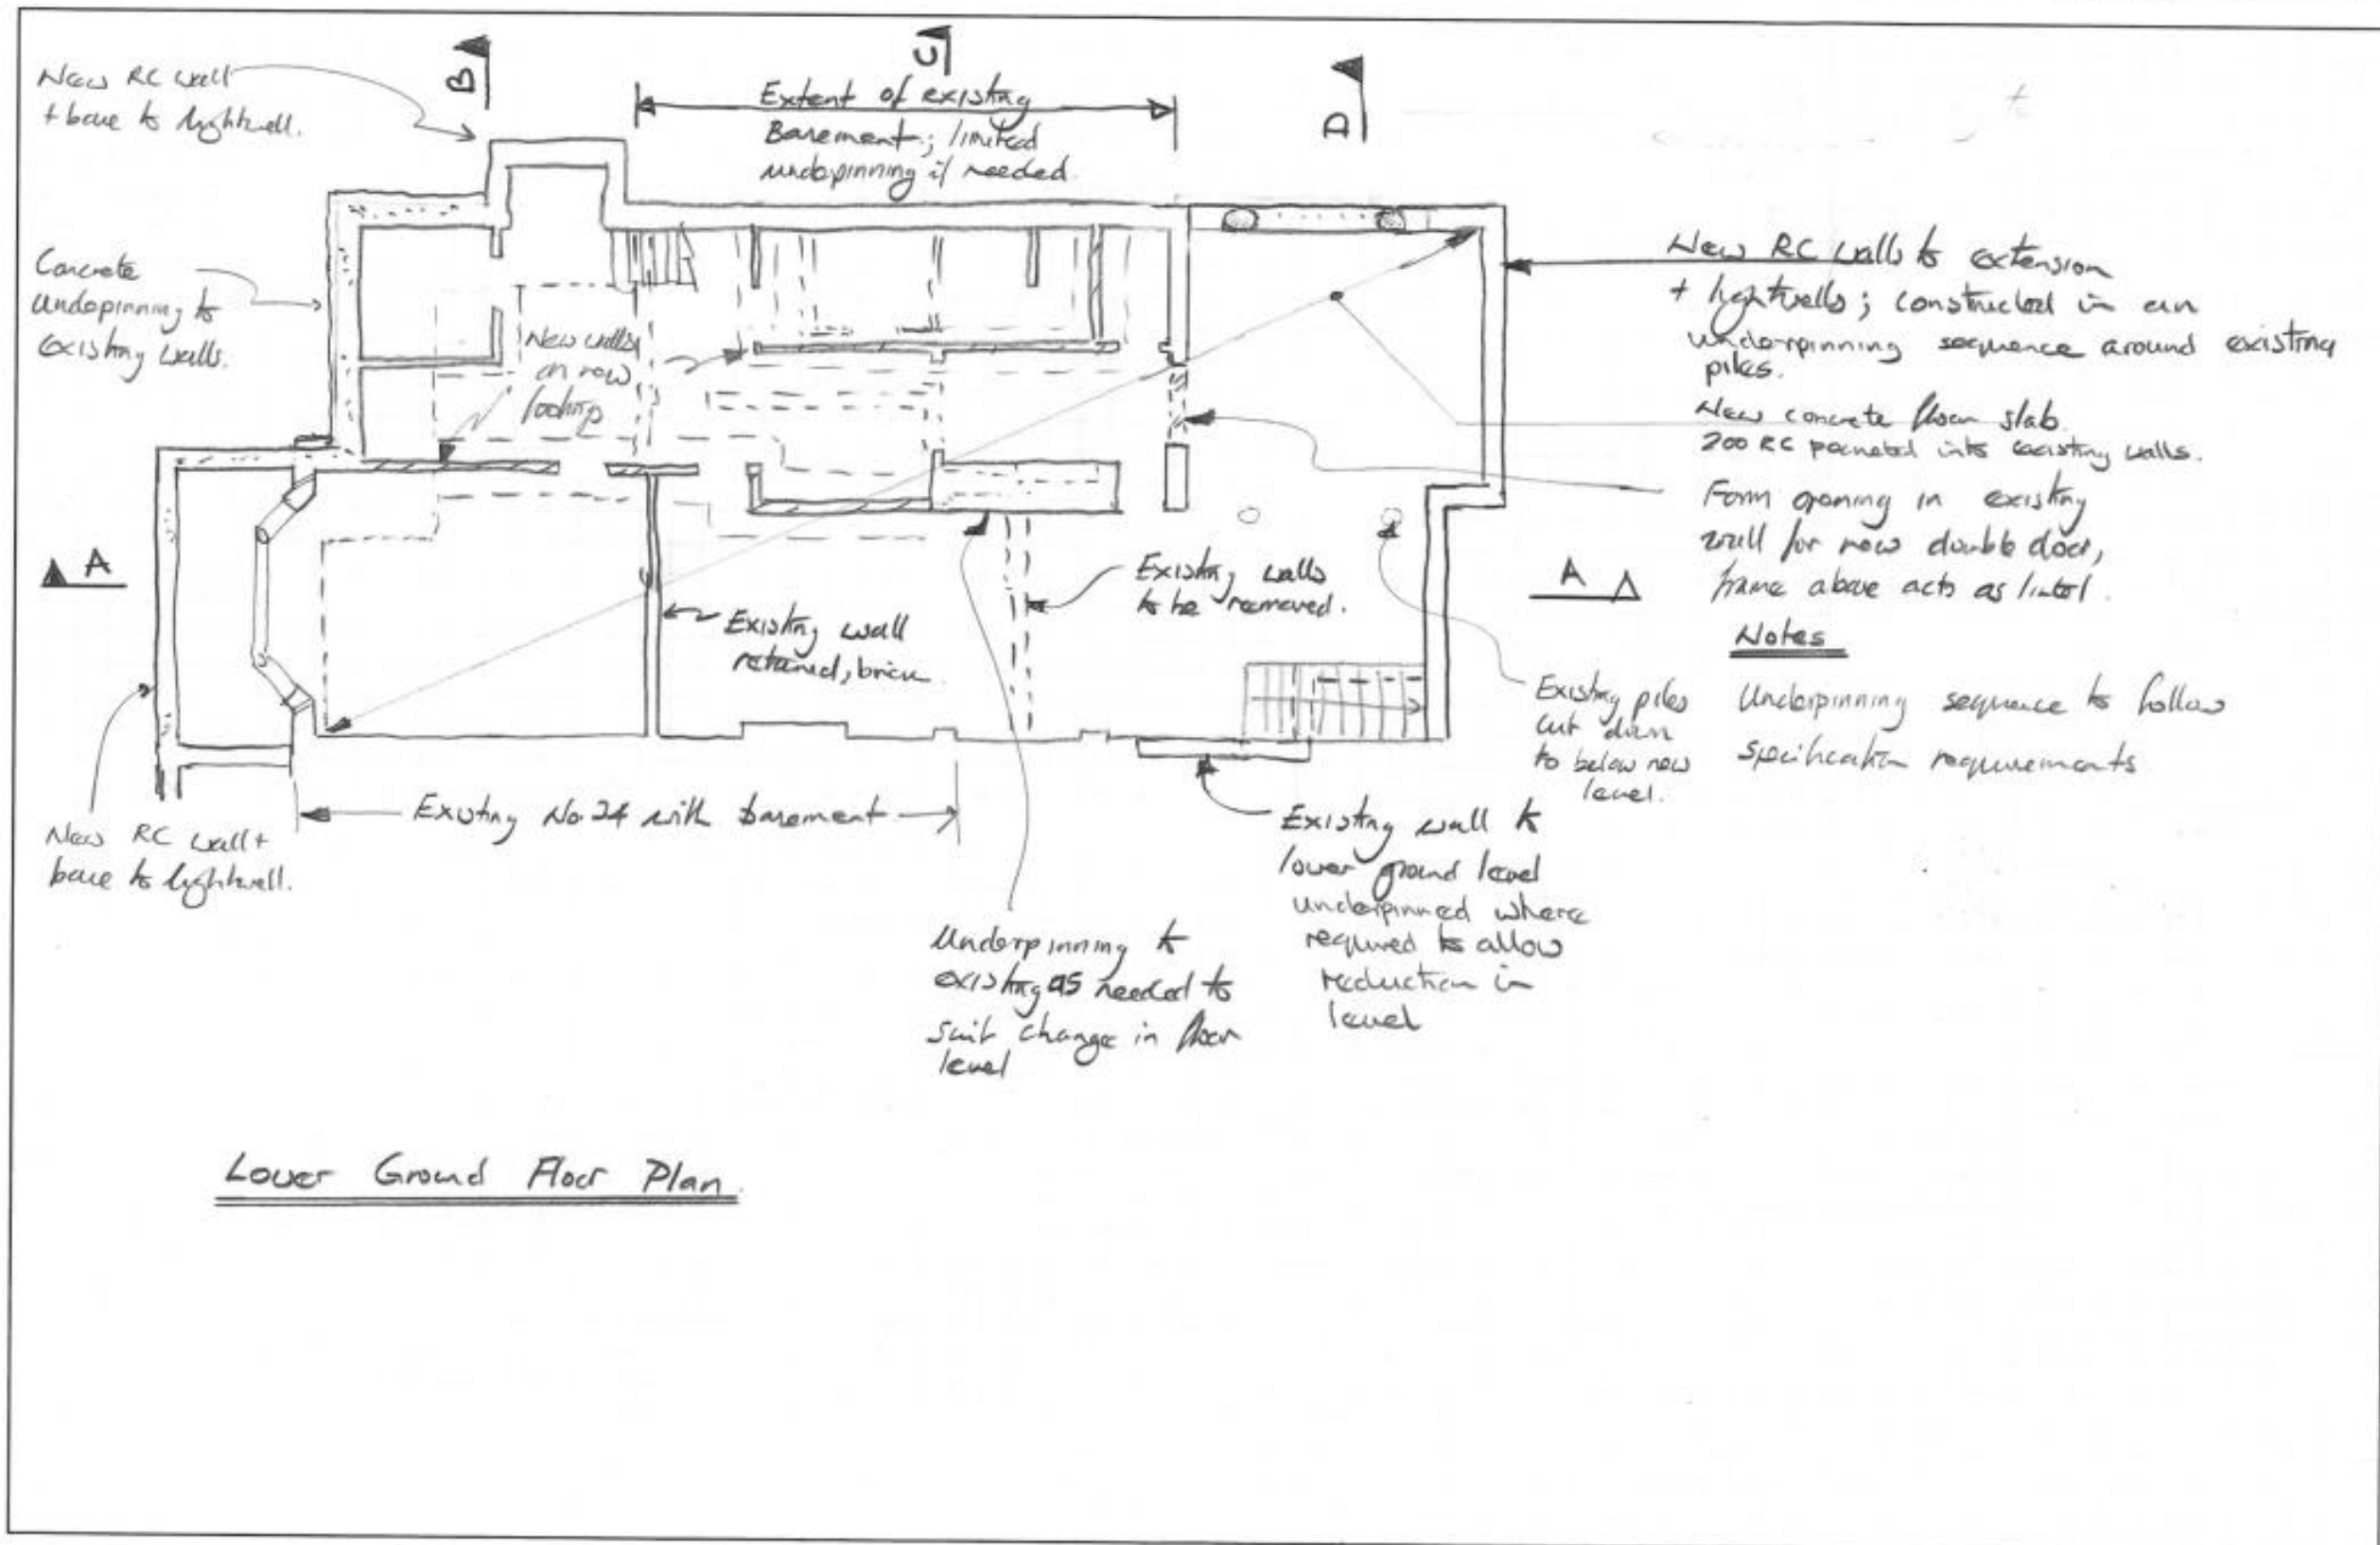 New RC wall
+ base to lightwell.
B
C
D
Extent of existing
Basement; limited
underpinning if needed.
Concrete
underpinning to
existing walls.
New walls
on new
footing
New RC walls to extension
+ lightwells; constructed in an
underpinning sequence around existing
piles.
New concrete floor slab
200 RC pocketed into existing walls.
Form opening in existing
wall for new double door,
frame above acts as lintel.
A
A
Existing walls
to be removed.
Existing wall
retained, brick
Notes
Underpinning sequence to follow
specification requirements
Existing piles
cut down
to below new
level.
Existing No 24 with basement
New RC wall +
base to lightwell.
Existing wall to
lower ground level
underpinned where
required to allow
reduction in
level
Underpinning to
existing as needed to
suit change in floor
level
Lower Ground Floor Plan.